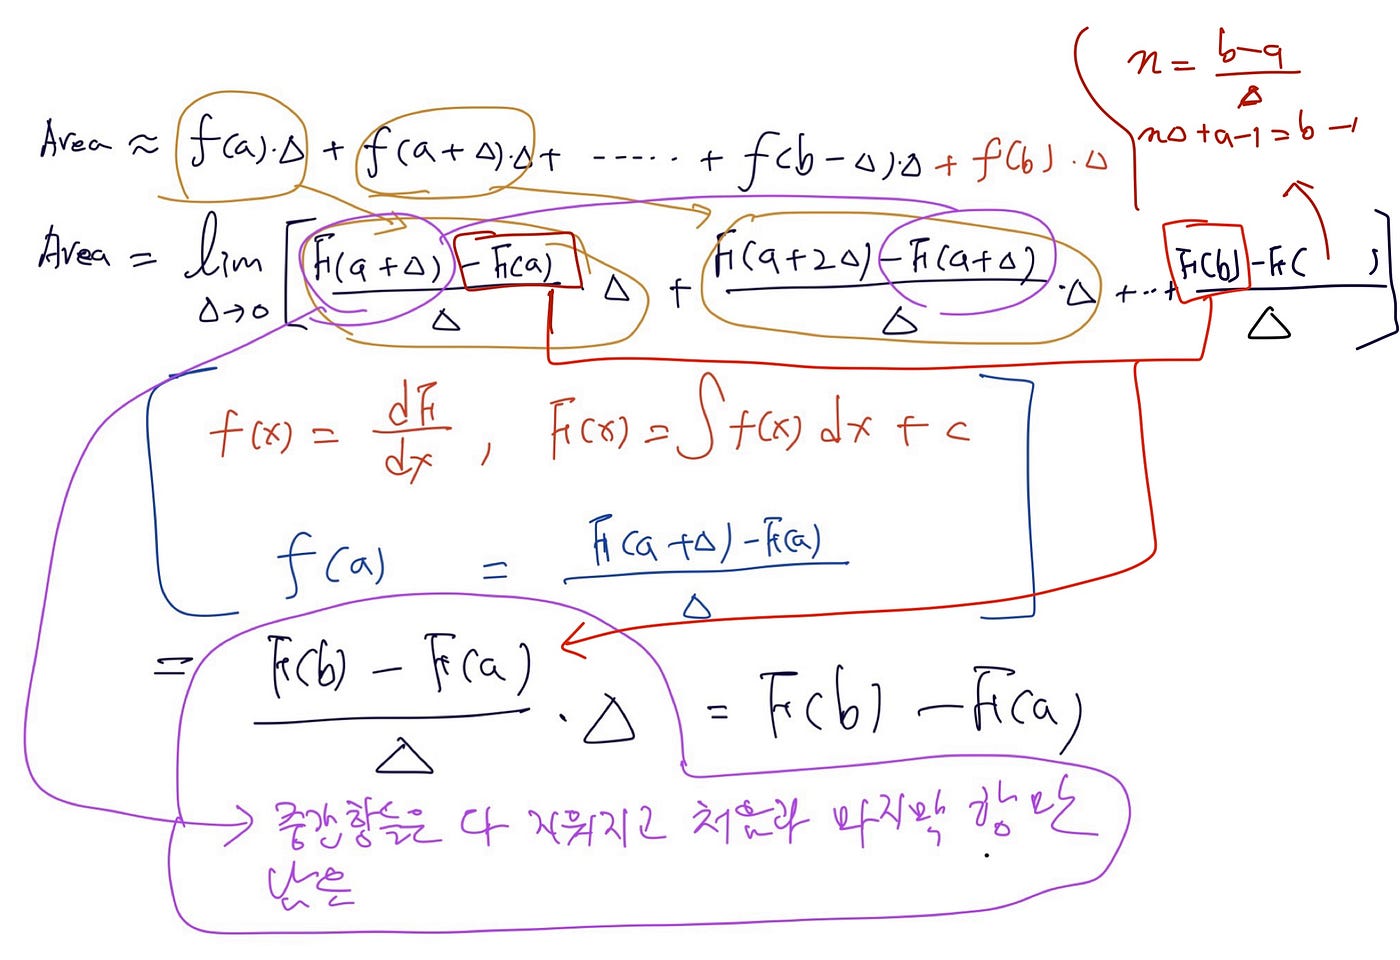 n = b-a / Δ
nΔ + a-1 = b-1
Area ≈ f(a)·Δ + f(a+Δ)·Δ + ----- + f(b-Δ)·Δ + f(b)·Δ
Area = lim Δ→0 [ F(a+Δ) - F(a) / Δ Δ + F(a+2Δ) - F(a+Δ) / Δ ·Δ + ··+ F(b) - F( ) / Δ ]
f(x) = dF/dx , F(x) = ∫ f(x) dx + c
f(a) = F(a+Δ) - F(a) / Δ
= F(b) - F(a) / Δ · Δ = F(b) - F(a)
→ 중간항들은 다 지워지고 처음과 마지막 항만
남음